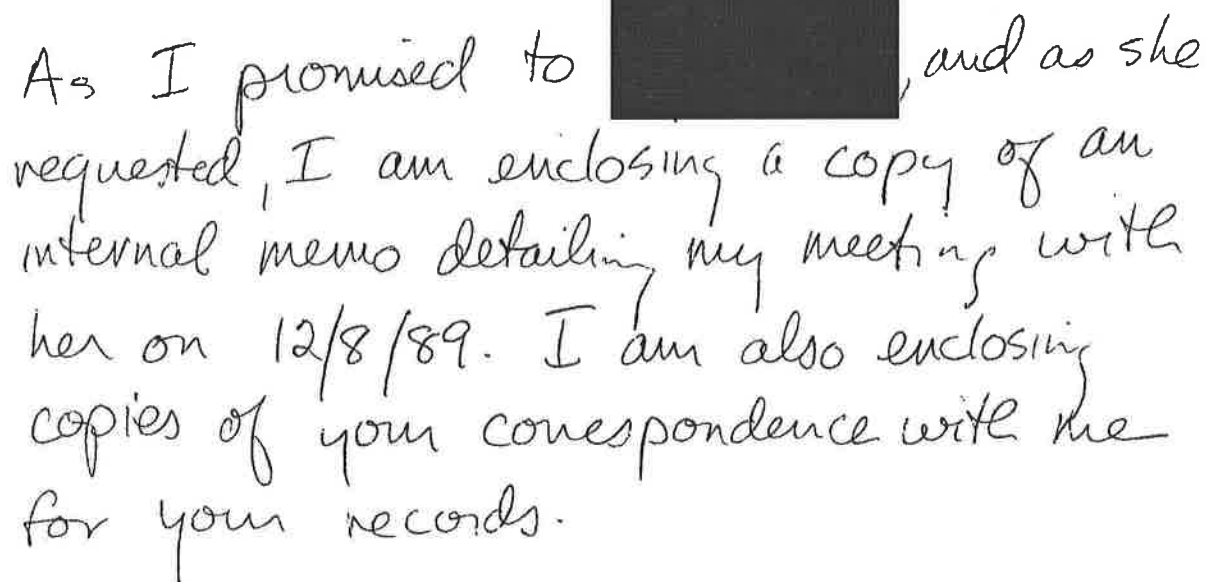 As I promised to , and as she
requested, I am enclosing a copy of an
internal memo detailing my meeting with
her on 12/8/89. I am also enclosing
copies of your correspondence with me
for your records.